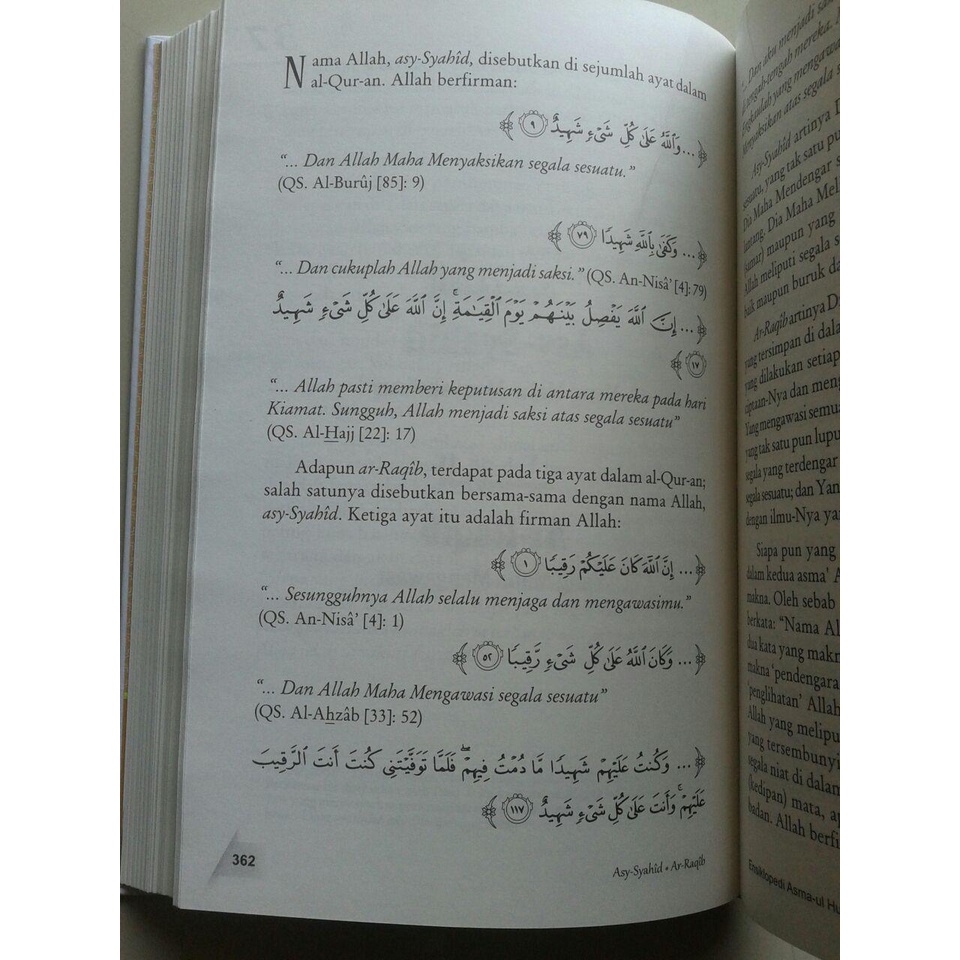 Nama Allah, asy-Syahîd, disebutkan di sejumlah ayat dalam
al-Qur-an. Allah berfirman:
﴿... وَٱللَّهُ عَلَىٰ كُلِّ شَىْءٍ شَهِيدٌ ٩﴾
“... Dan Allah Maha Menyaksikan segala sesuatu.”
(QS. Al-Burûj [85]: 9)
﴿... وَكَفَىٰ بِٱللَّهِ شَهِيدًا ٧٩﴾
“... Dan cukuplah Allah yang menjadi saksi.” (QS. An-Nisâ’ [4]: 79)
﴿... إِنَّ ٱللَّهَ يَفْصِلُ بَيْنَهُمْ يَوْمَ ٱلْقِيَـٰمَةِ ۚ إِنَّ ٱللَّهَ عَلَىٰ كُلِّ شَىْءٍ شَهِيدٌ
١٧﴾
“... Allah pasti memberi keputusan di antara mereka pada hari
Kiamat. Sungguh, Allah menjadi saksi atas segala sesuatu”
(QS. Al-Hajj [22]: 17)
Adapun ar-Raqîb, terdapat pada tiga ayat dalam al-Qur-an;
salah satunya disebutkan bersama-sama dengan nama Allah,
asy-Syahîd. Ketiga ayat itu adalah firman Allah:
﴿... إِنَّ ٱللَّهَ كَانَ عَلَيْكُمْ رَقِيبًا ١﴾
“... Sesungguhnya Allah selalu menjaga dan mengawasimu.”
(QS. An-Nisâ’ [4]: 1)
﴿... وَكَانَ ٱللَّهُ عَلَىٰ كُلِّ شَىْءٍ رَّقِيبًا ٥٢﴾
“... Dan Allah Maha Mengawasi segala sesuatu”
(QS. Al-Ahzâb [33]: 52)
﴿... وَكُنتُ عَلَيْهِمْ شَهِيدًا مَّا دُمْتُ فِيهِمْ ۖ فَلَمَّا تَوَفَّيْتَنِى كُنتَ أَنتَ ٱلرَّقِيبَ
عَلَيْهِمْ ۚ وَأَنتَ عَلَىٰ كُلِّ شَىْءٍ شَهِيدٌ ١١٧﴾
362
Asy-Syahîd • Ar-Raqîb
Dan aku menjadi
tengah-tengah mereka.
yang mengawa
Menyaksikan atas segala
Asy-Syahîd artinya D
sesuatu, yang tak satu pun
Dia Maha Mendengar s
lantang. Dia Maha Mel
(samar) maupun yang
Allah meliputi segala s
baik maupun buruk da
Ar-Raqîb artinya D
yang tersimpan di dala
yang dilakukan setiap
ciptaan-Nya dan meng
Yang mengawasi semua
yang tak satu pun lupu
segala yang terdengar
segala sesuatu; dan Yan
dengan ilmu-Nya ya
Siapa pun yang
dalam kedua asma’ A
makna. Oleh sebab
berkata: “Nama Al
dua kata yang makn
makna ‘pendengara
‘penglihatan’ Allah
Allah yang melipu
yang tersembunyi
segala niat di dalam
(kedipan) mata, ap
badan. Allah berfi
Ensiklopedi Asma-ul Hu